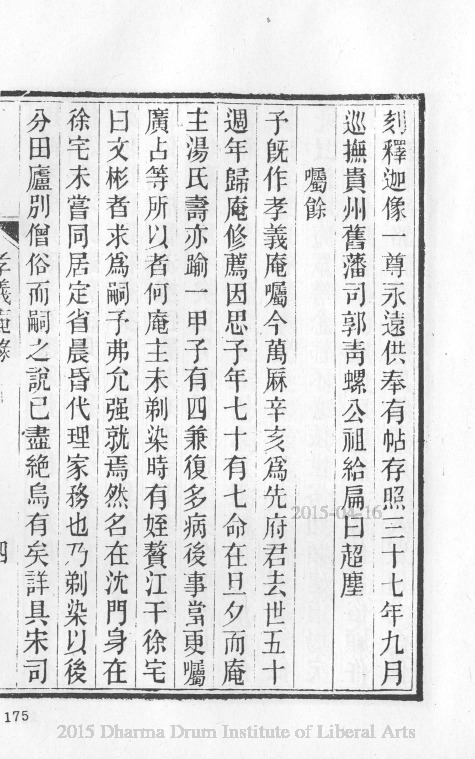 刻釋迦像一尊永遠供奉有帖存照三十七年九月
巡撫貴州舊藩司郭靑螺公祖給扁曰超塵
囑餘
予旣作孝義庵囑今萬厤辛亥爲先府君去世五十
週年歸庵修薦因思予年七十有七命在旦夕而庵
主湯氏壽亦踰一甲子有四兼復多病後事當更囑
廣占等所以者何庵主未剃染時有姪贅江干徐宅
曰文彬者求爲嗣予弗允强就焉然名在沈門身在
徐宅未嘗同居定省晨昏代理家務也乃剃染以後
分田廬別僧俗而嗣之說已盡絕烏有矣詳具宋司
孝義
錄
四
2015-04-16
175
2015 Dharma Drum Institute of Liberal Arts